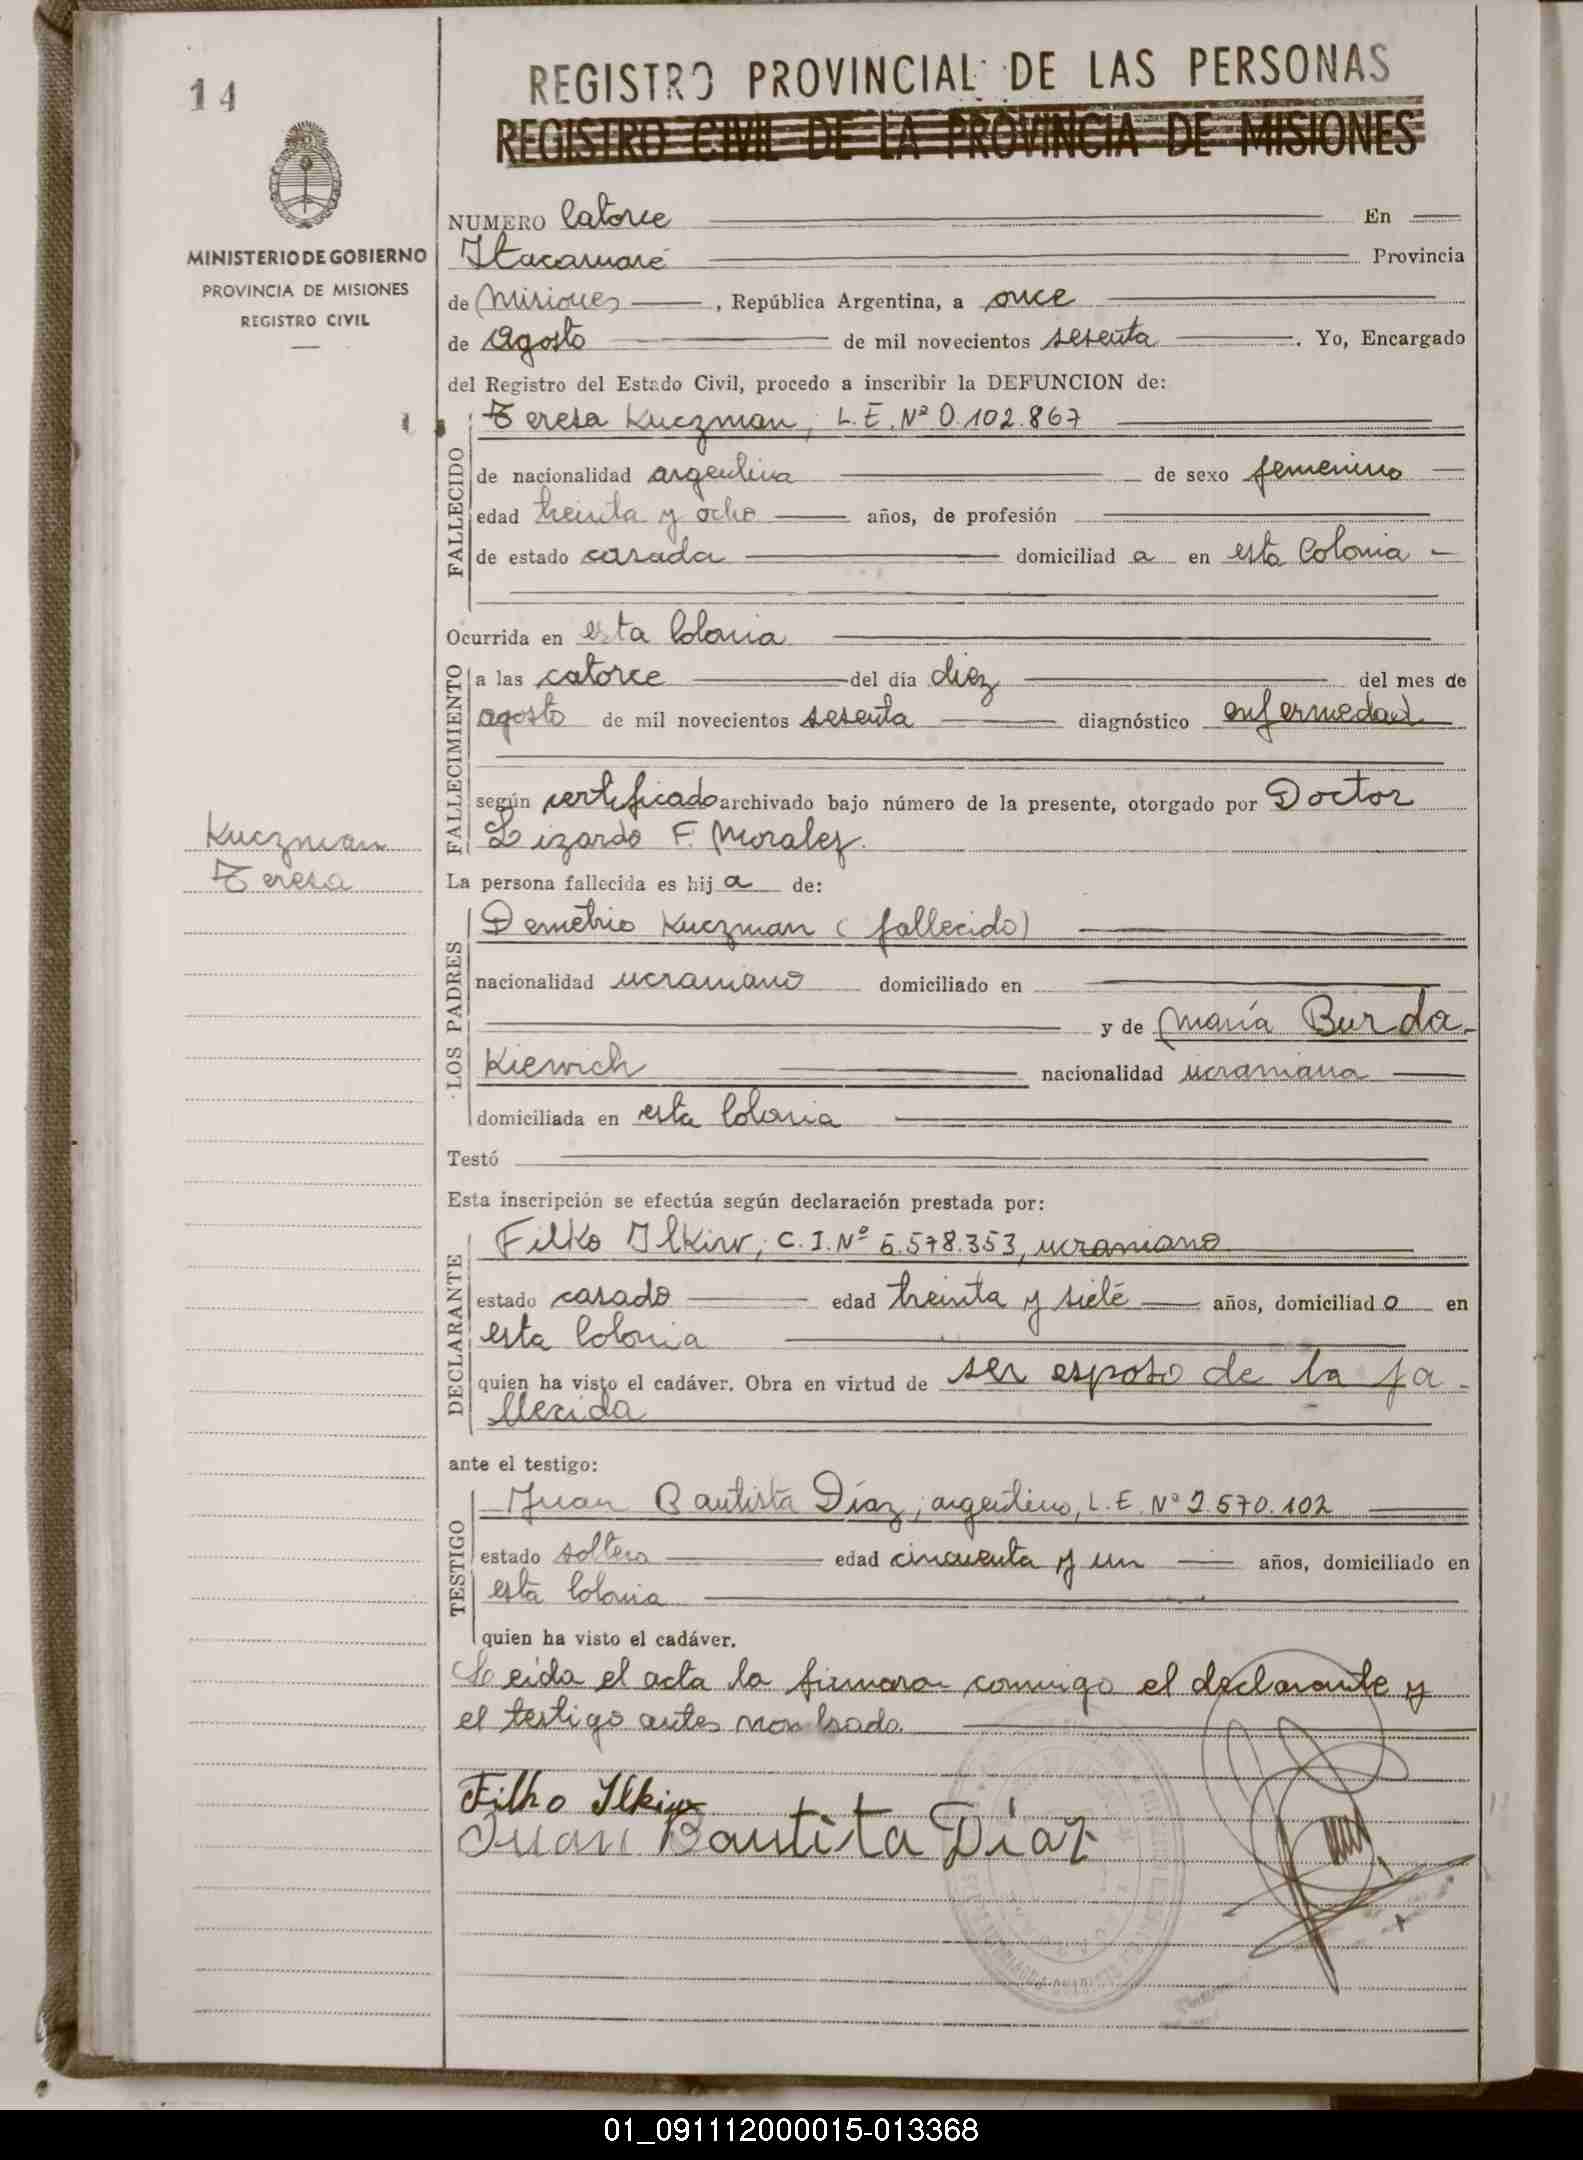 14
MINISTERIO DE GOBIERNO
PROVINCIA DE MISIONES
REGISTRO CIVIL
Kuczman
Teresa
REGISTRO PROVINCIAL DE LAS PERSONAS
REGISTRO CIVIL DE LA PROVINCIA DE MISIONES
NUMERO Catorce En
Itacaruaré Provincia
de Misiones, República Argentina, a once
de Agosto de mil novecientos sesenta. Yo, Encargado
del Registro del Estado Civil, procedo a inscribir la DEFUNCION de:
FALLECIDO
Teresa Kuczman, L.E. Nº 0.102.867
de nacionalidad argentina de sexo femenino
edad treinta y ocho años, de profesión
de estado casada domiciliad a en esta Colonia
Ocurrida en esta Colonia
FALLECIMIENTO
a las catorce del día diez del mes de
agosto de mil novecientos sesenta diagnóstico enfermedad
según certificado archivado bajo número de la presente, otorgado por Doctor
Lizardo F. Morales.
La persona fallecida es hij a de:
LOS PADRES
Demetrio Kuczman (fallecido)
nacionalidad ucraniano domiciliado en
y de María Burda-
Kiewich nacionalidad ucraniana
domiciliada en esta Colonia
Testó
Esta inscripción se efectúa según declaración prestada por:
DECLARANTE
Filko Ilkiw, C.I. Nº 6.578.353, ucraniano
estado casado edad treinta y siete años, domiciliad o en
esta Colonia
quien ha visto el cadáver. Obra en virtud de ser esposo de la fa-
llecida
ante el testigo:
TESTIGO
Juan Bautista Díaz, argentino, L.E. Nº 2.570.102
estado soltero edad cincuenta y un años, domiciliado en
esta Colonia
quien ha visto el cadáver.
Leída el acta la firmaron conmigo el declarante y
el testigo antes nombrado.
Filko Ilkiw
Juan Bautita Díaz
01_091112000015-013368